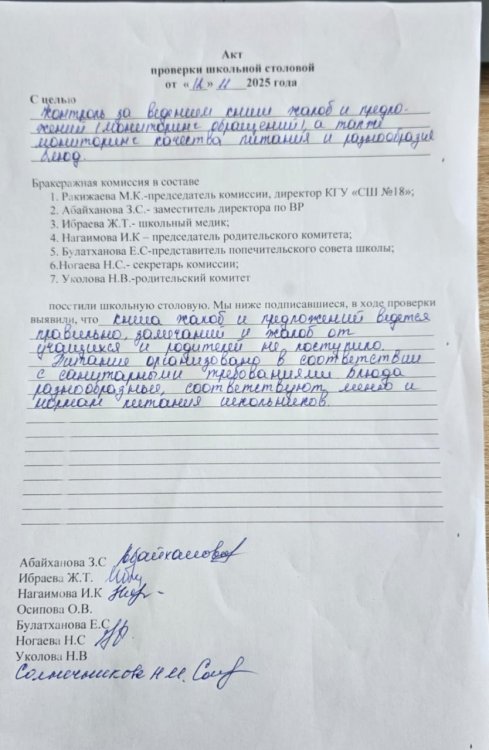 Акт
проверки школьной столовой
от «12» 11 2025 года
С целью
контроль за ведением книги жалоб и предло-
жений (мониторинг обращений), а также
мониторинг качества питания и разнообразия
блюд.
Бракеражная комиссия в составе
1. Ракижаева М.К.-председатель комиссии, директор КГУ «СШ №18»;
2. Абайханова З.С.- заместитель директора по ВР
3. Ибраева Ж.Т.- школьный медик;
4. Нагаимова И.К – председатель родительского комитета;
5. Булатханова Е.С-представитель попечительского совета школы;
6.Ногаева Н.С.- секретарь комиссии;
7. Уколова Н.В.-родительский комитет
постили школьную столовую. Мы ниже подписавшиеся, в ходе проверки
выявили, что книга жалоб и предложений ведется
правильно, замечаний и жалоб от
учащихся и родителей не поступило.
Питание организовано в соответствии
с санитарными требованиями блюда
разнообразные, соответствуют меню и
нормам питания школьников.
Абайханова З.С Абайханова
Ибраева Ж.Т.
Нагаимова И.К
Осипова О.В.
Булатханова Е.С
Ногаева Н.С
Уколова Н.В
Солнечникова Н.М.